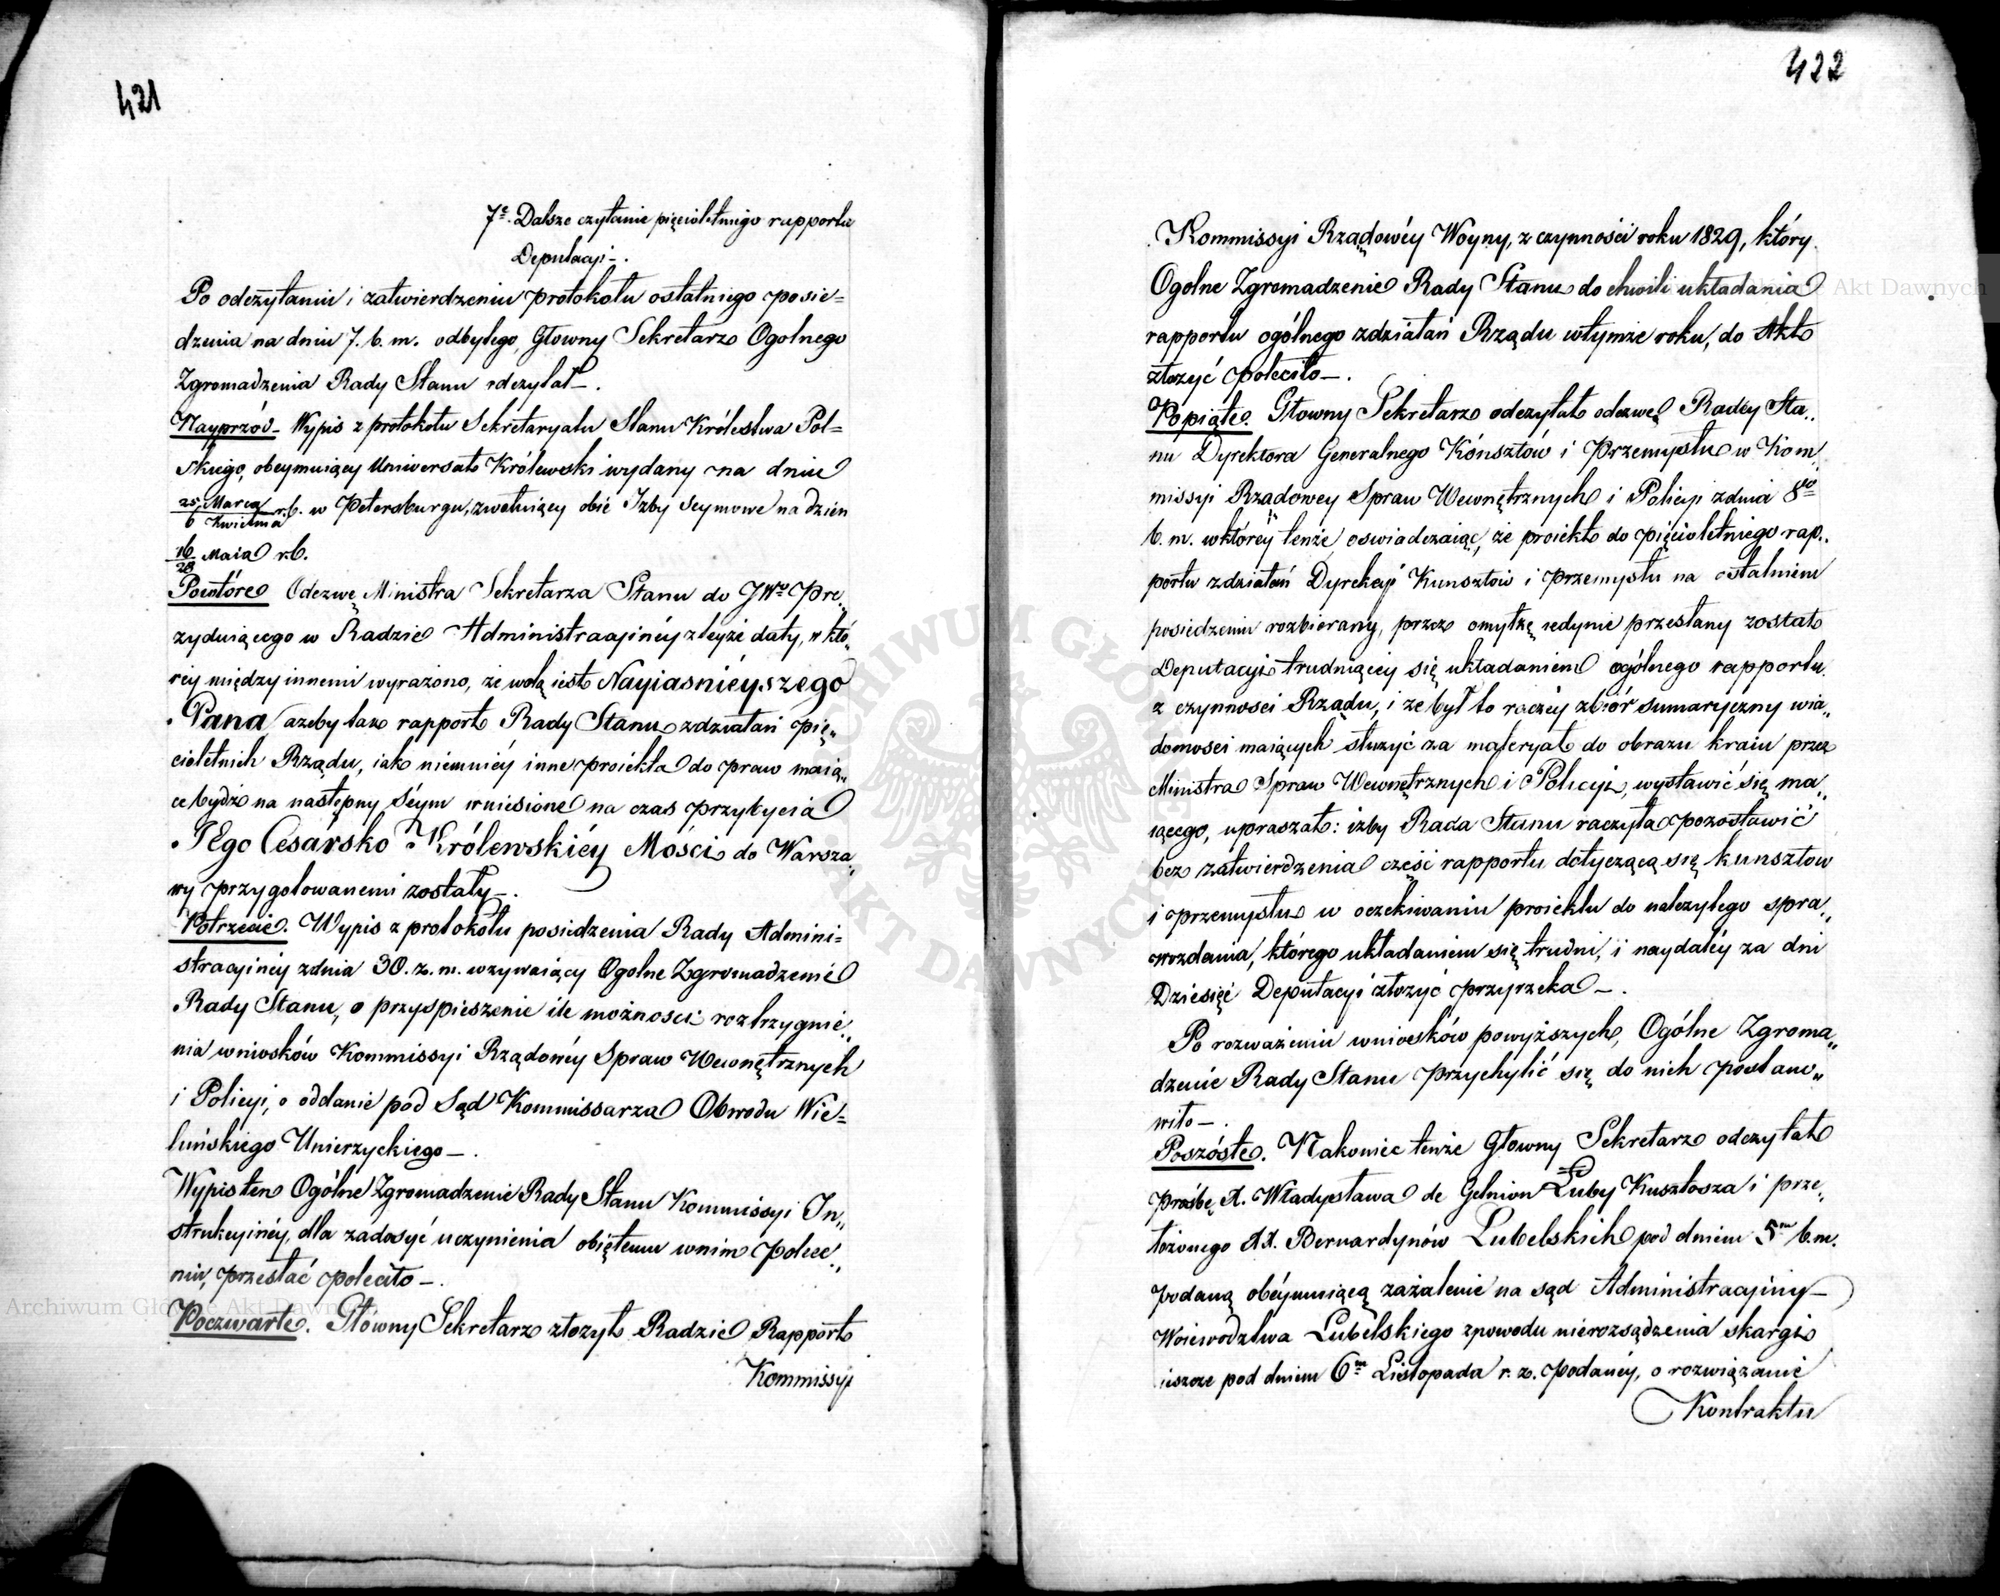 421
7e. Dalsze czytanie pięcioletniego rapportu
Deputacyi –.
Po odczytaniu i zatwierdzeniu protokołu ostatniego posie=
dzenia na dniu 7. b. m. odbytego, Głowny Sekretarz Ogolnego
Zgromadzenia Rady Stanu odczytał –.
Nayprzód – Wypis z protokołu Sekretaryatu Stanu Królestwa Pol=
skiego, obeymuiący Uniwersał Królewski wydany na dniu
25 Marca / 6 Kwietnia r.b. w Petersburgu, zwołuiący obie Izby Seymowe na dzien
16/28 Maia r.b.
Powtóre Odezwę Ministra Sekretarza Stanu do JWo Pre„
zyduiącego w Radzie Administracyinéy z teyże daty, w któ„
rey między innemi wyrażono, że wolą iest Nayiaśnieyszego
Pana, ażeby tak rapport Rady Stanu z działań pię„
cioletnich Rządu, iako niemniéy inne proiekta do praw maią„
ce bydź na następny Séym wniesione na czas przybycia
JEgo Cesarsko Królewskiéy Mości do Warsza„
wy przygotowanemi zostały –.
Potrzecie. Wypis z protokołu posiedzenia Rady Admini=
stracyinéy z dnia 30. z. m. wzywaiący Ogolne Zgromadzenie
Rady Stanu, o przyspieszenie ile możności roztrzygnie„
nia wniosków Kommissyi Rządowéy Spraw Wewnętrznych
i Policyi, o oddanie pod Sąd Kommissarza Obwodu Wie=
luńskiego Unierzyckiego –.
Wypis ten Ogólne Zgromadzenie Rady Stanu Kommissyi In„
strukcyinéy, dla zadosyć uczynienia obiętemu w nim polece„
niu, przesłać poleciło –.
Poczwarte. Główny Sekretarz złożył Radzie Rapport
Kommissyi
422
Kommissyi Rządowéy Woyny, z czynności roku 1829, który
Ogolne Zgromadzenie Rady Stanu do chwili układania
rapportu ogólnego z działań Rządu w tymże roku, do Akt
złożyć poleciło –.
Popiąte. Głowny Sekretarz odczytał odezwę Radcy Sta„
nu Dyrektora Generalnego Kónsztów i Przemysłu w Kom„
missyi Rządowey Spraw Wewnętrznych i Policyi z dnia 8go
b. m. w któréy tenże oswiadczaiąc, że proiekt do pięcioletniego rap„
portu z działań Dyrekcyi Kunsztow i przemysłu na ostatniem
posiedzeniu rozbierany, przez omyłkę iedynie przesłany został
Deputacyi trudniącey się układaniem ogólnego rapportu
z czynnosci Rządu, i że był to raczéy zbiór sumaryczny wia„
domosci maiących służyć za materyał do obrazu kraiu przez
Ministra Spraw Wewnętrznych i Policyi, wystawić się ma„
iącego, upraszał: iżby Rada Stanu raczyła pozostawić
bez zatwierdzenia część rapportu dotyczącą się kunsztow
i przemysłu w oczekiwaniu proiektu do należytego spra„
wozdania, którego układaniem się trudni, i naydaléy za dni
Dziesięć Deputacyi złożyć przyrzeka –.
Po rozważeniu wniosków powyższych, Ogólne Zgroma„
dzenie Rady Stanu przychylić się do nich postano„
wiło –.
Poszóste. Nakoniec tenże Głowny Sekretarz odczytał
Prośbę X. Władysława de Gelnion Łuby Kusztosza i prze„
łożonego XX. Bernardynów Lubelskich pod dniem 5m b. m.
podaną obéymuiącą zażalenie na sąd Administracyiny
Woiewodztwa Lubelskiego z powodu nierozsądzenia skargi
ieszcze pod dniem 6m Listopada r. z. podanéy, o rozwiązanie
Kontraktu
Archiwum Główne Akt Dawnych